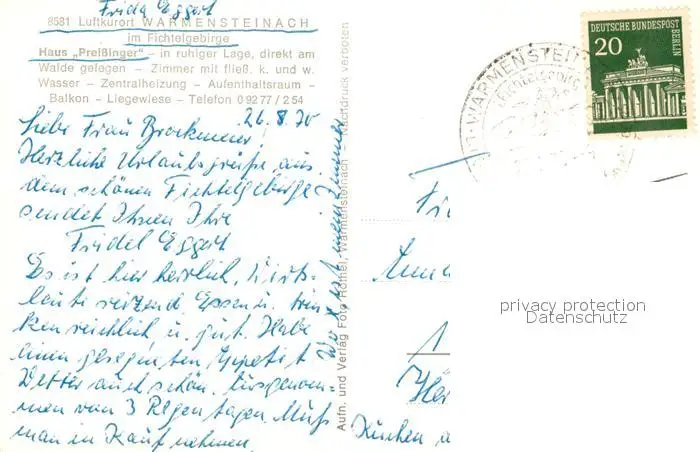 Frida Eggert
8581 Luftkurort WARMENSTEINACH
im Fichtelgebirge
Haus „Preißinger" – in ruhiger Lage, direkt am
Walde gelegen – Zimmer mit fließ. k. und w.
Wasser – Zentralheizung – Aufenthaltsraum –
Balkon – Liegewiese – Telefon 09277/254
26.8.70
Liebe Frau Brockmeier
Herzliche Urlaubsgrüße aus
dem schönen Fichtelgebirge
sendet Ihnen Ihre
Fridel Eggert
Es ist hier herrlich, Wirts-
leute reizend. Essen u. trin-
ken reichlich u. gut. Habe
einen gesegneten Appetit
Wetter auch schön, ausgenom-
men von 3 Regentagen. Muß
man in Kauf nehmen.
Der X ist mein Zimmer
Aufn. und Verlag Foto Rothel, Warmensteinach – Nachdruck verboten
WARMENSTEIN
Fichtelgebirge
DEUTSCHE BUNDESPOST
BERLIN
20
Kuchen
privacy protection
Datenschutz